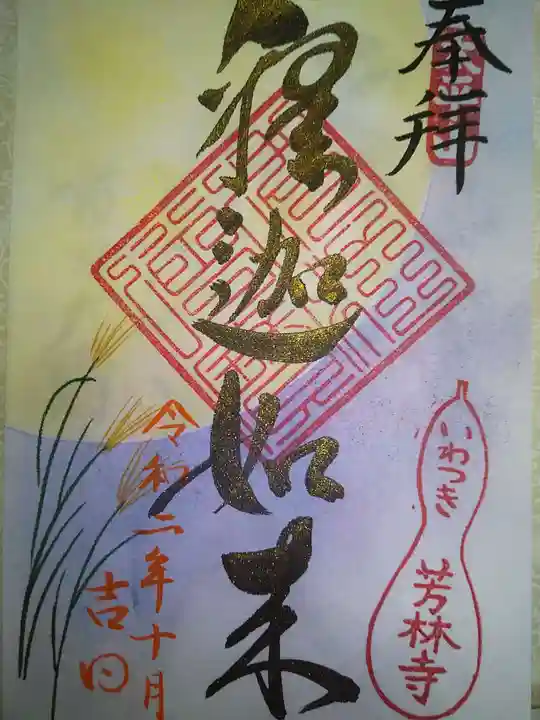 奉拝
釋迦如来
いわつき
芳林寺
令和二年十月
吉日